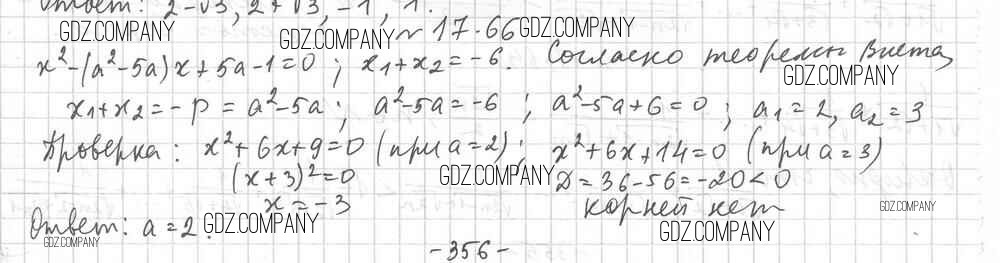 Ответ: 2-√3, 2+√3, -1, 1.
GDZ.COMPANY GDZ.COMPANY № 17.66 GDZ.COMPANY
x²-(a²-5a)x+5a-1=0; x₁+x₂=-6. Согласно теоремы Виета,
GDZ.COMPANY
x₁+x₂=-p=a²-5a; a²-5a=-6; a²-5a+6=0; a₁=2, a₂=3
Проверка: x²+6x+9=0 (при a=2); x²+6x+14=0 (при a=3)
(x+3)²=0 GDZ.COMPANY D=36-56=-20<0
x=-3 корней нет GDZ.COMPANY
Ответ: a=2. GDZ.COMPANY GDZ.COMPANY
GDZ.COMPANY
-356-